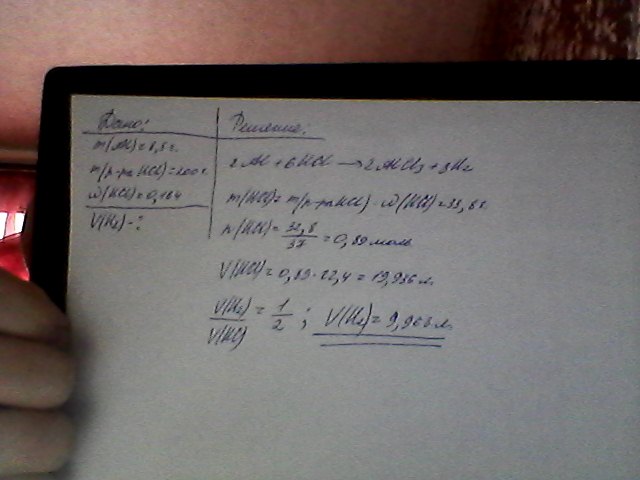 Дано:
m(Al)=8,5г.
m(р-ра HCl)=200г.
ω(HCl)=0,164
V(H₂)-?
Решение:
2Al+6HCl→2AlCl₃+3H₂
m(HCl)=m(р-ра HCl)·ω(HCl)=32,8г.
n(HCl)=32,8/37=0,89моль
V(HCl)=0,89·22,4=19,936л.
V(H₂)/V(HCl)=1/2; V(H₂)=9,968л.